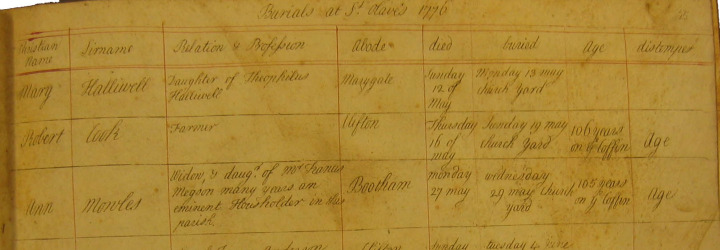 Burials at St. Olave's 1776
Christian Name Sirname Relation & Profession Abode died buried Age distemper
Mary Halliwell Daughter of Theophilus Halliwell Marygate Sunday 12 of May Monday 13 may church yard
Robert Cook Farmer Clifton Thursday 16 of may Sunday 19 may church yard 106 years on ye Coffin Age
Ann Mowles Widow, & daugr. of mr. Francis Megson many years an eminent Housholder in this parish. Bootham monday 27 may wednesday 29 may Church yard 105 years on ye Coffin Age
tuesday 4